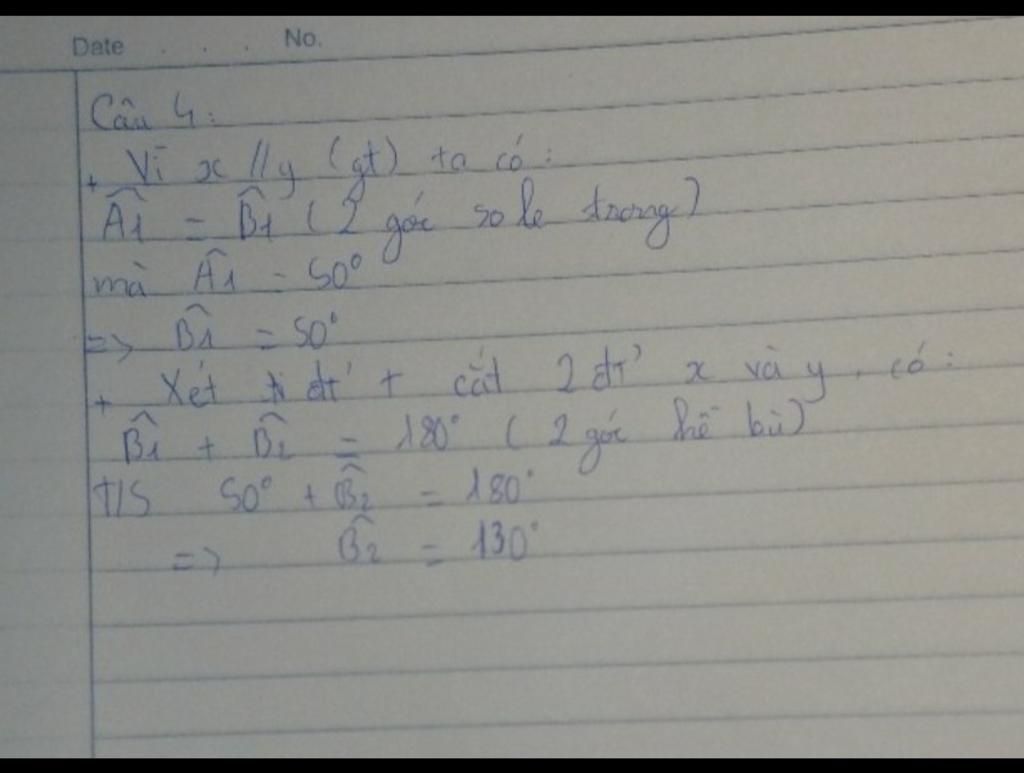 Date . . . No.
Câu 4:
+ Vì x // y (gt) ta có:
Â1 = B̂1 (2 góc so le trong)
mà Â1 = 50°
=> B̂1 = 50°
+ Xét đt' t cắt 2 đt' x và y, có:
B̂1 + B̂2 = 180° (2 góc kề bù)
T/S 50° + B̂2 = 180°
=> B̂2 = 130°